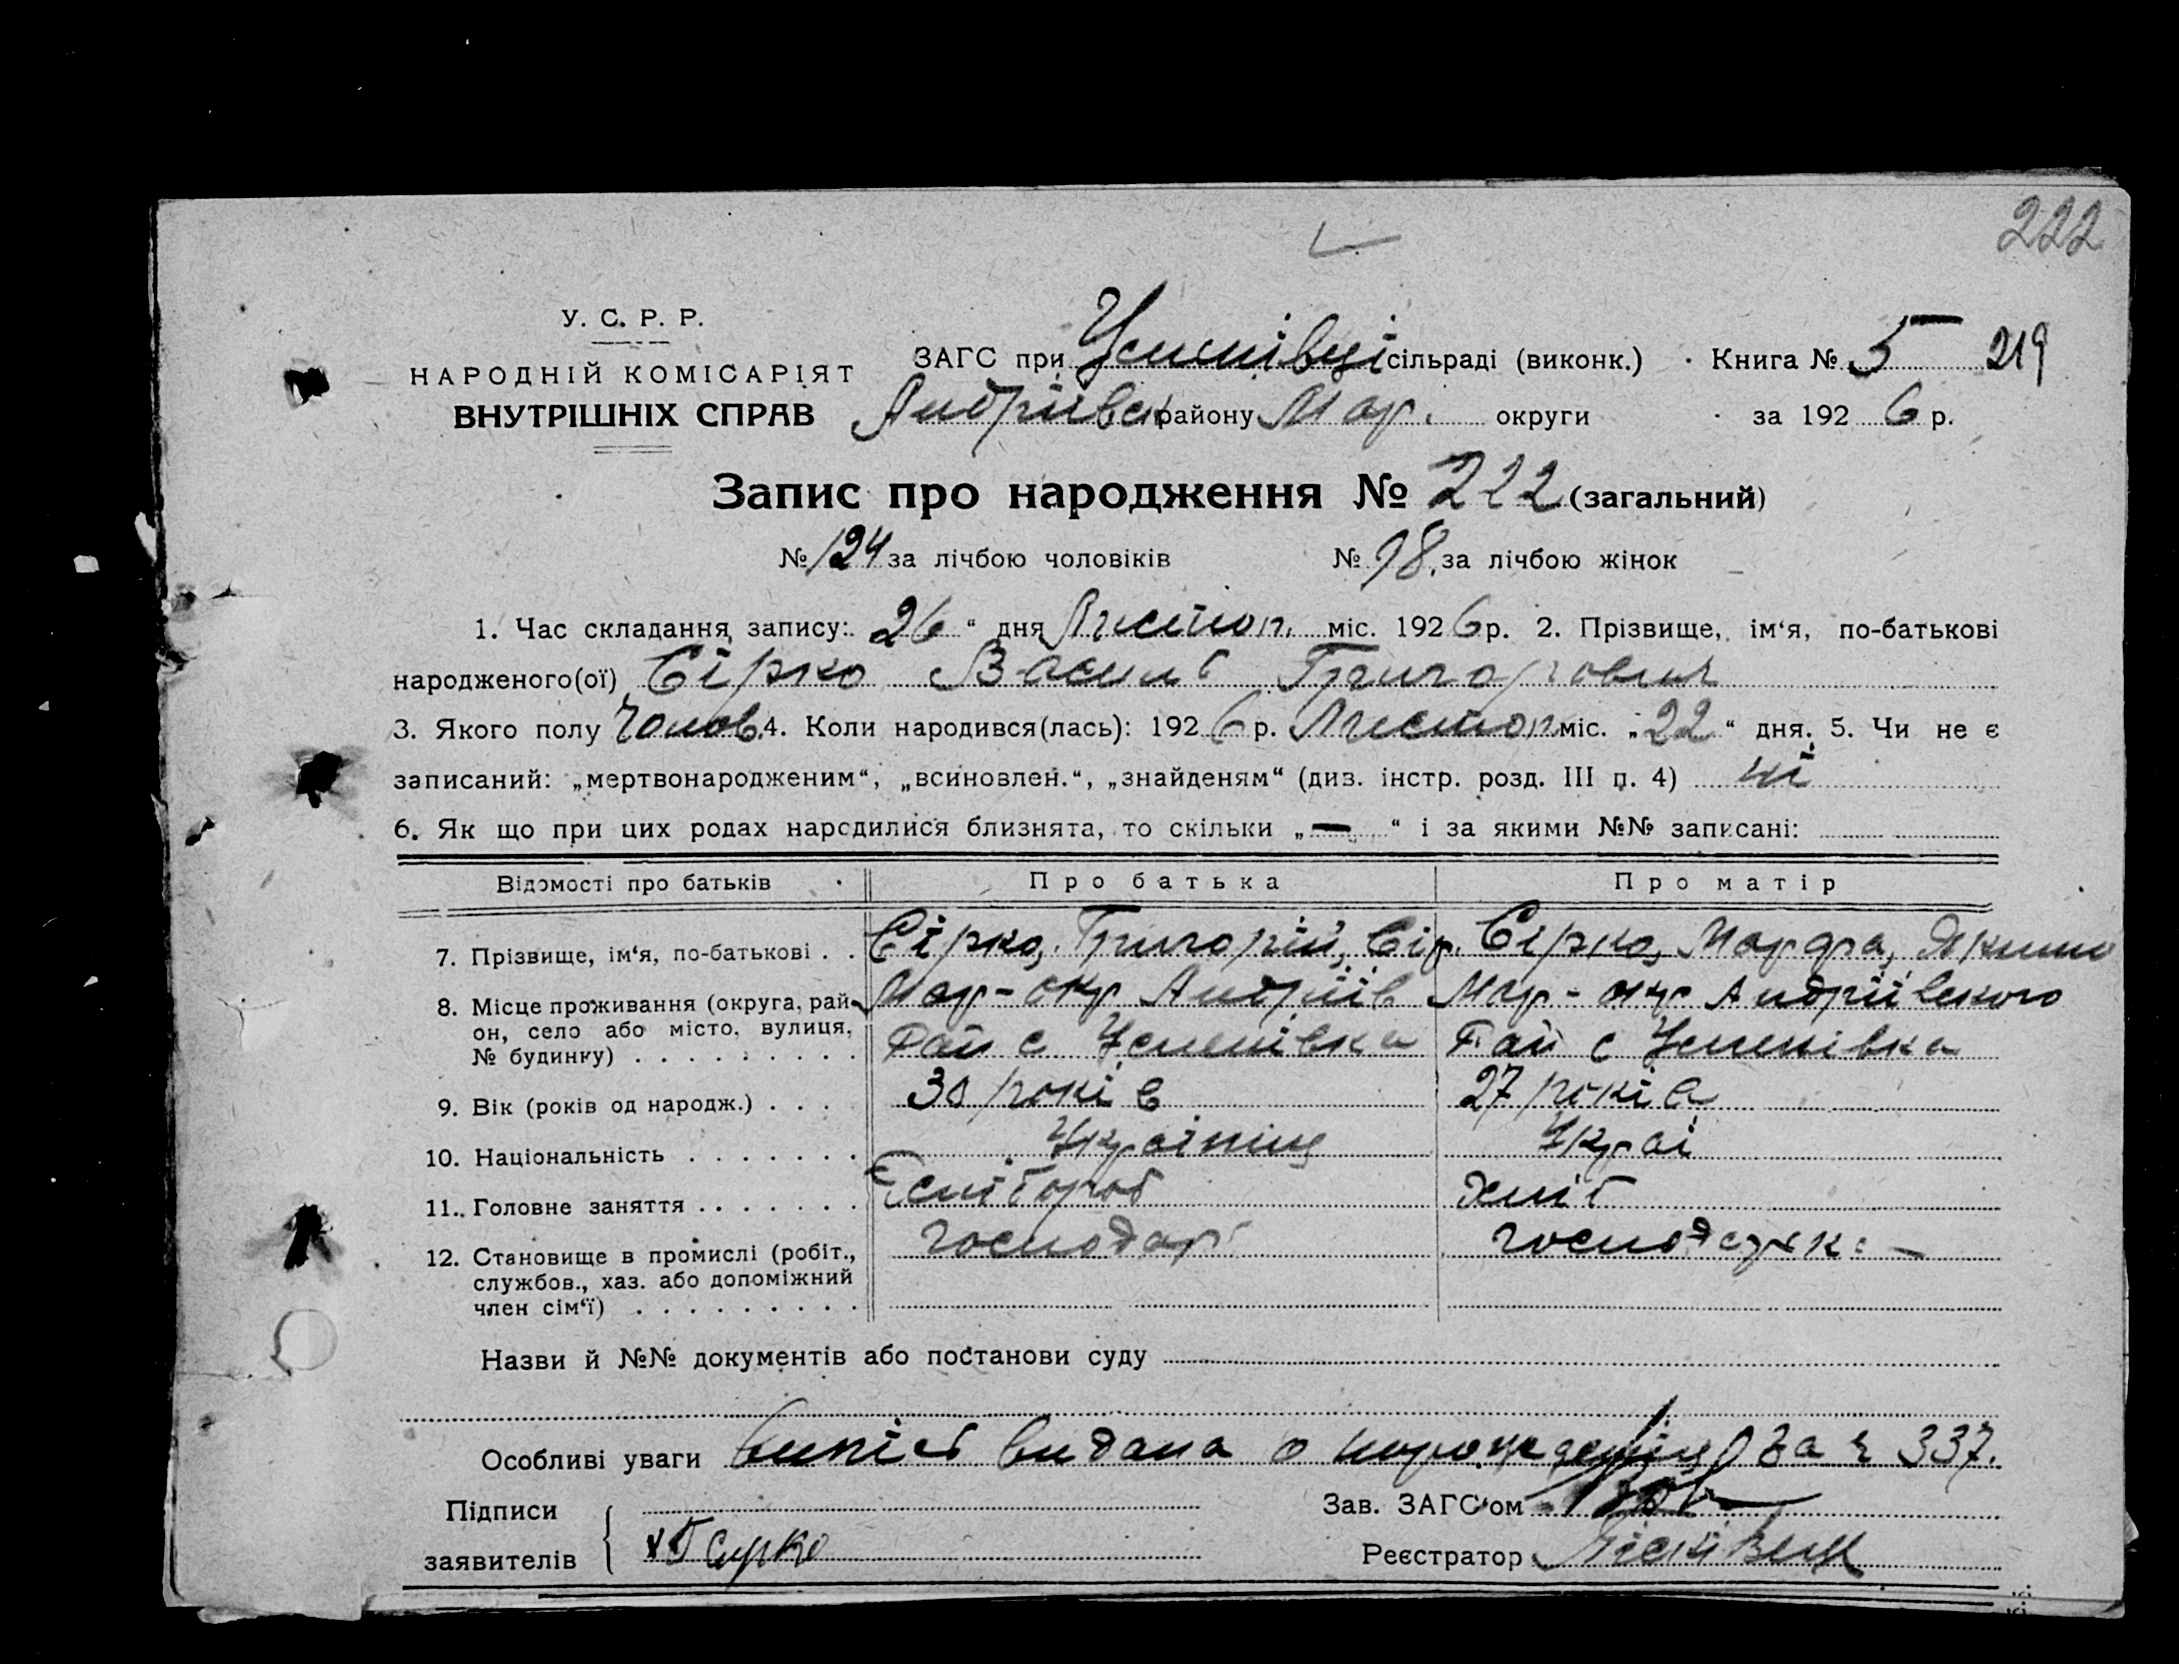 222
У. С. Р. Р.
НАРОДНІЙ КОМІСАРІЯТ
ВНУТРІШНІХ СПРАВ
ЗАГС при Успенівці сільраді (виконк.) Книга № 5 219
Андріївск району Мар. округи за 1926 р.
Запис про народження № 222 (загальний)
№ 124 за лічбою чоловіків № 98 за лічбою жінок
1. Час складання запису: 26 “ дня Листоп. міс. 1926 р. 2. Прізвище, ім‘я, по-батькові
народженого(ої) Сірко Василь Григорович
3. Якого полу Чолов. 4. Коли народився(лась): 1926 р. Листоп міс. „22“ дня. 5. Чи не є
записаний: „мертвонародженим“, „всиновлен.“, „знайденям“ (див. інстр. розд. III п. 4) ні
6. Як що при цих родах народилися близнята, то скільки „—“ і за якими №№ записані:
Відомості про батьків Про батька Про матір
7. Прізвище, ім‘я, по-батькові . . Сірко, Григорій, Сір. Сірко, Марфа, Якимо
8. Місце проживання (округа, рай- Мар-окр Андріїв Мар-окр Андріївского
он, село або місто, вулиця, Рай с Успенівка Рай с Успенівка
№ будинку)
9. Вік (років од народж.) . . . 30 років 27 років
10. Національність Україниц Украі
11. Головне заняття Хліброб Хліб
12. Становище в промислі (робіт., господар господарка
службов., хаз. або допоміжний
член сім‘ї)
Назви й №№ документів або постанови суду
Особливі уваги Випісь видана о нарождении за № 337.
Підписи Зав. ЗАГС‘ом
заявителів Г Сирко Реєстратор